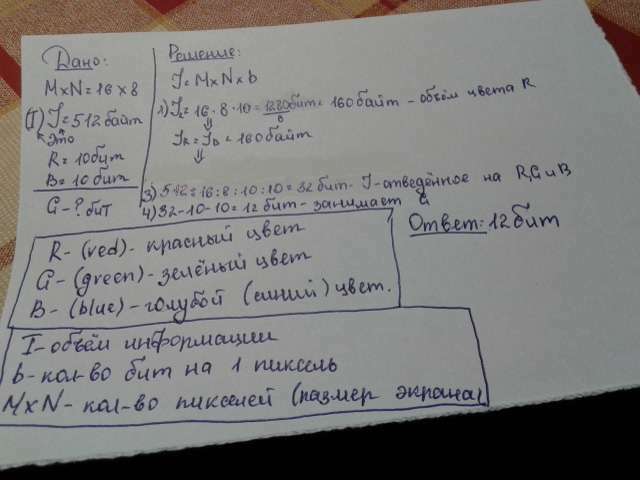 Дано:
MxN=16x8
(I) I=512 байт
это
R=10бит
B=10 бит
G-? бит
Решение:
I=MxNxb
1) I =16·8·10=1280бит= 160байт - объём цвета R
8
IR=IB=160байт
3) 512=16:8:10:10=32 бит- I-отведённое на R,G и B
4) 32-10-10=12 бит- занимает G
Ответ: 12 бит
R- (red)- красный цвет
G- (green)- зелёный цвет
B- (blue)- голубой (синий) цвет.
I-объём информации
b-кол-во бит на 1 пиксель
MxN- кол-во пикселей (размер экрана)